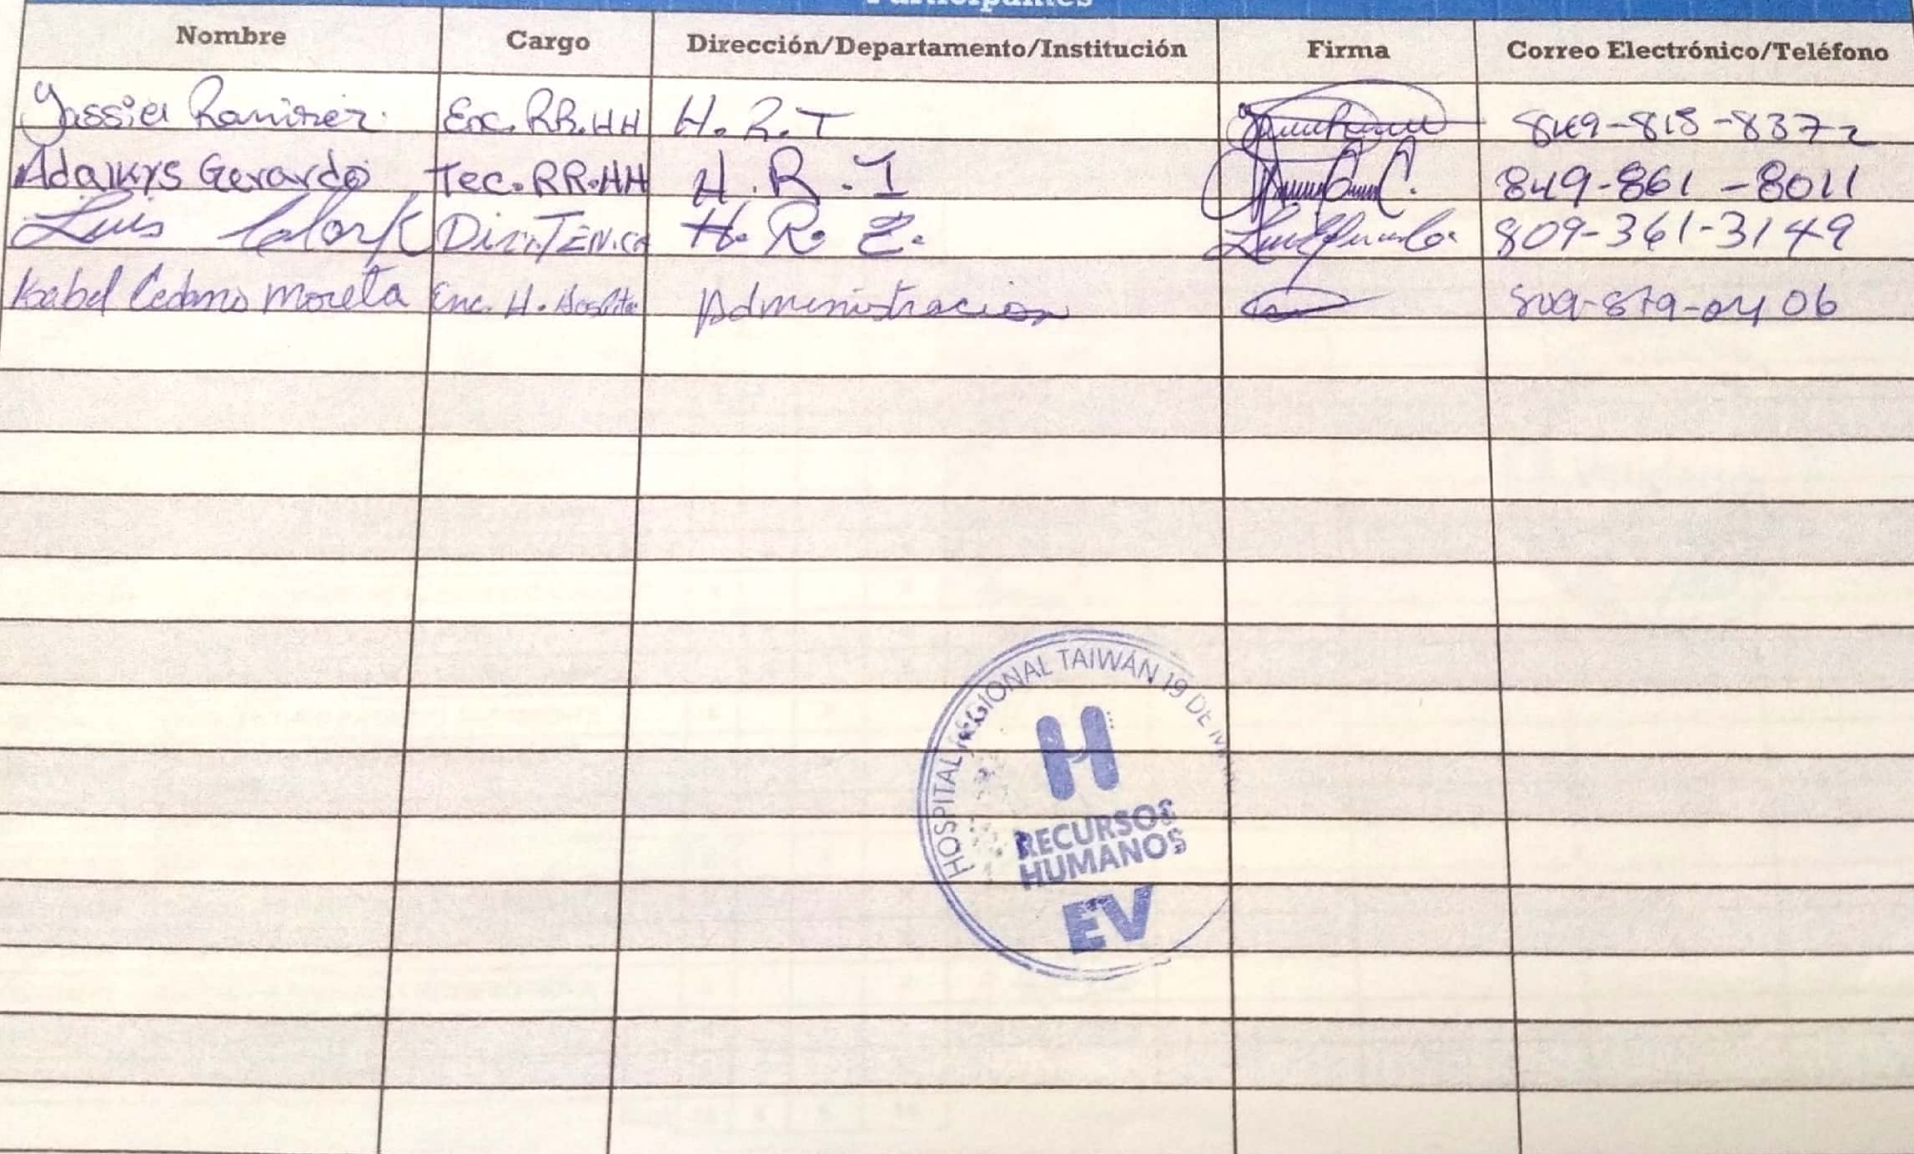 Participantes
Nombre Cargo Dirección/Departamento/Institución Firma Correo Electrónico/Teléfono
Yassiel Ramirez. Enc. RR.HH H.R.T 849-815-8372
Adalkys Gerardo Tec.RR.HH H.R.T 849-861-8011
Luis H.R. 809-361-3149
Isabel Cedano Moreta Enc. H. Administracion 06
HOSPITAL REGIONAL TAIWÁN 19 DE
H
RECURSOS
HUMANOS
EV